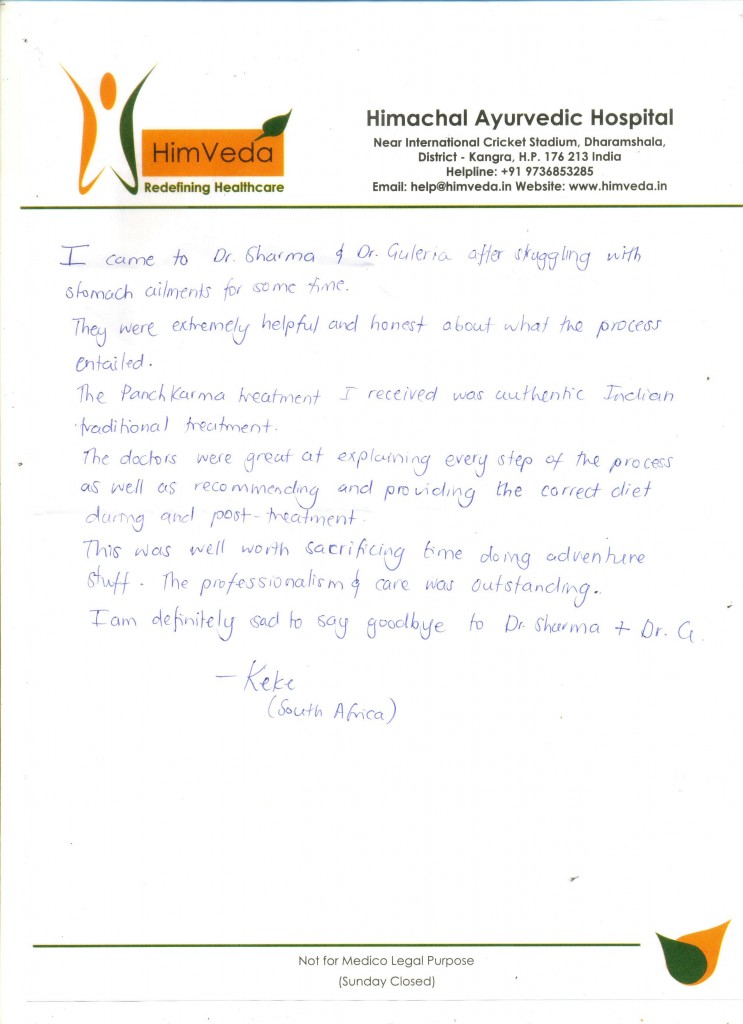 HimVeda
Redefining Healthcare
Himachal Ayurvedic Hospital
Near International Cricket Stadium, Dharamshala,
District - Kangra, H.P. 176 213 India
Helpline: +91 9736853285
Email: help@himveda.in Website: www.himveda.in
I came to Dr. Sharma & Dr. Guleria after struggling with
stomach ailments for some time.
They were extremely helpful and honest about what the process
entailed.
The PanchKarma treatment I received was authentic Indian
traditional treatment.
The doctors were great at explaining every step of the process
as well as recommending and providing the correct diet
during and post-treatment.
This was well worth sacrificing time doing adventure
stuff. The professionalism & care was outstanding.
I am definitely sad to say goodbye to Dr. Sharma + Dr. G.
- Keke
(South Africa)
Not for Medico Legal Purpose
(Sunday Closed)